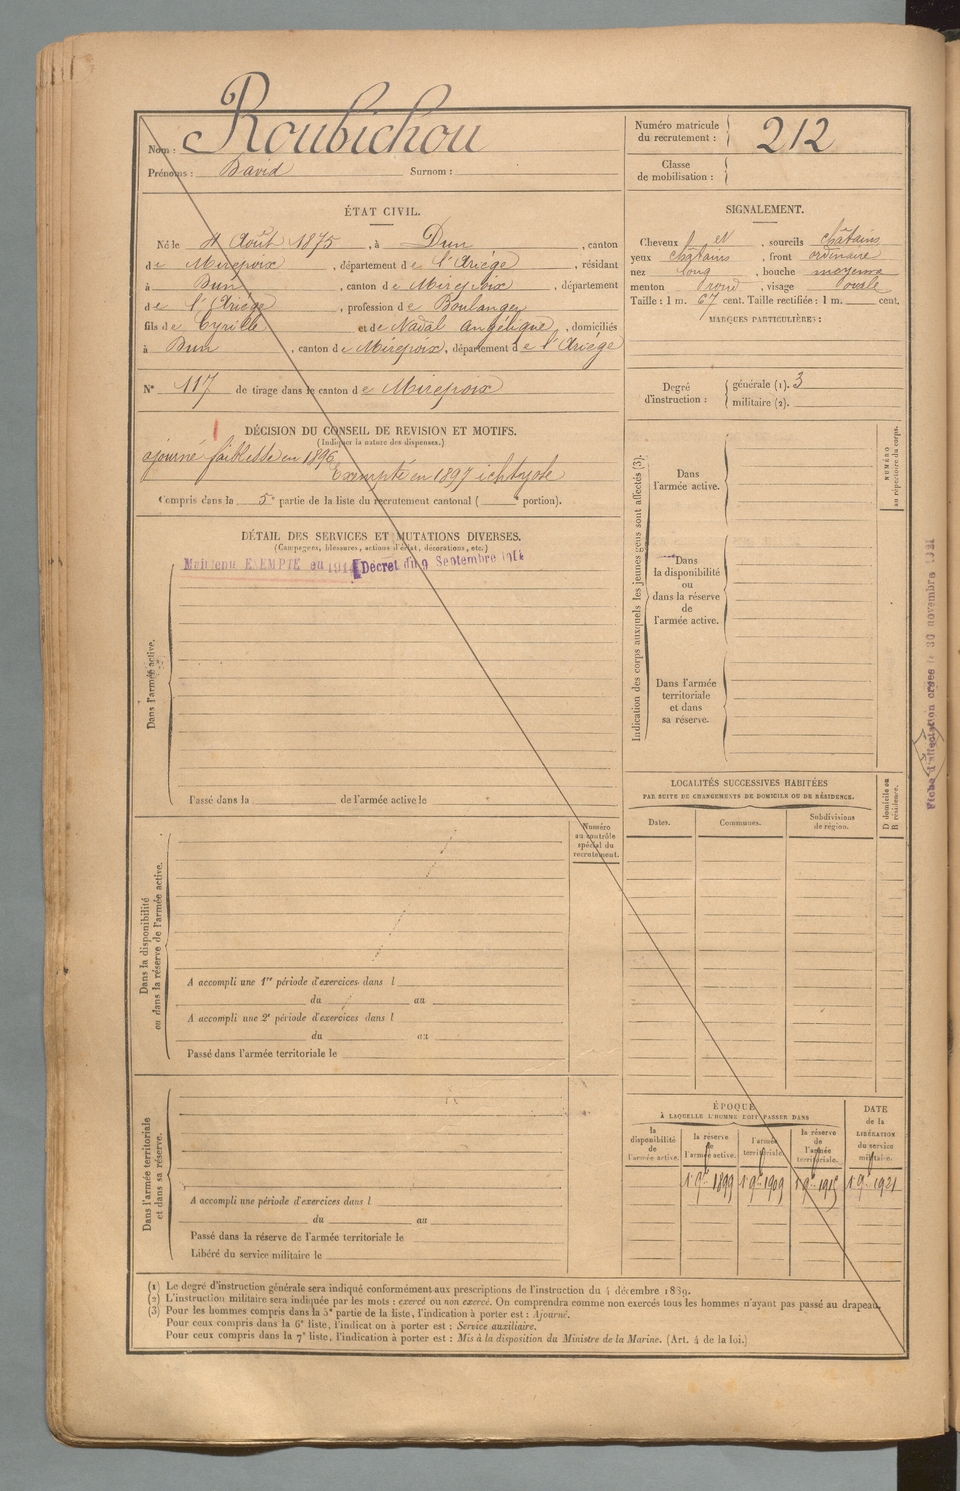 Nom : Roubichou
Prénoms : David Surnom :
Numéro matricule du recrutement : 212
Classe de mobilisation :
ÉTAT CIVIL.
Né le 4 Août 1875, à Dun, canton
de Mirepoix, département de l'Ariége, résidant
à Dun, canton de Mirepoix, département
de l'Ariége, profession de Boulanger
fils de Cyrille et de Nadal Angélique, domiciliés
à Dun, canton de Mirepoix, département de l'Ariége
N° 117 de tirage dans le canton de Mirepoix
SIGNALEMENT.
Cheveux et, sourcils châtains
yeux châtains, front ordinaire
nez long, bouche moyenne
menton rond, visage ovale
Taille : 1 m. 67 cent. Taille rectifiée : 1 m. cent.
MARQUES PARTICULIÈRES :
Degré d'instruction : générale (1). 3
militaire (2).
DÉCISION DU CONSEIL DE REVISION ET MOTIFS.
(Indiquer la nature des dispenses.)
ajourné faiblesse en 1896
Exempté en 1897 ichtyose
Compris dans la 5e partie de la liste du recrutement cantonal ( e portion).
DÉTAIL DES SERVICES ET MUTATIONS DIVERSES.
(Campagnes, blessures, actions d'éclat, décorations, etc.)
Maintenu EXEMPTÉ en 1914 Decret du 9 Septembre 1914
Dans l'armée active.
Passé dans la de l'armée active le
Numéro au contrôle spécial du recrutement.
Dans la disponibilité ou dans la réserve de l'armée active.
A accompli une 1re période d'exercices dans l
du au
A accompli une 2e période d'exercices dans l
du au
Passé dans l'armée territoriale le
Dans l'armée territoriale et dans sa réserve.
A accompli une période d'exercices dans l
du au
Passé dans la réserve de l'armée territoriale le
Libéré du service militaire le
Indication des corps auxquels les jeunes gens sont affectés (3).
Dans l'armée active.
Dans la disponibilité ou dans la réserve de l'armée active.
Dans l'armée territoriale et dans sa réserve.
NUMÉRO au répertoire du corps.
Fiche d'affectation créée le 30 novembre 1921
LOCALITÉS SUCCESSIVES HABITÉES
PAR SUITE DE CHANGEMENTS DE DOMICILE OU DE RÉSIDENCE.
Dates. Communes. Subdivisions de région.
D domicile ou R résidence.
ÉPOQUE
À LAQUELLE L'HOMME DOIT PASSER DANS
la disponibilité de l'armée active. la réserve de l'armée active. l'armée territoriale. la réserve de l'armée territoriale.
DATE de la LIBÉRATION du service militaire.
1 9bre 1899 1 9bre 1909 1 9bre 1915 1 9bre 1921
(1) Le degré d'instruction générale sera indiqué conformément aux prescriptions de l'instruction du 4 décembre 1889.
(2) L'instruction militaire sera indiquée par les mots : exercé ou non exercé. On comprendra comme non exercés tous les hommes n'ayant pas passé au drapeau.
(3) Pour les hommes compris dans la 5e partie de la liste, l'indication à porter est : Ajourné.
Pour ceux compris dans la 6e liste, l'indication à porter est : Service auxiliaire.
Pour ceux compris dans la 7e liste, l'indication à porter est : Mis à la disposition du Ministre de la Marine. (Art. 4 de la loi.)